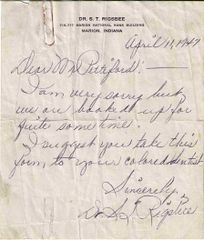 DR. S. T. RIGSBEE
MARION NATIONAL BANK BUILDING
MARION, INDIANA
April 11, 1947
Dear Mr Pettiford: -
I am very sorry but
we are booked up for
quite some time.
I suggest you take this
form to your colored dentist
Sincerely,
S. T. Rigsbee